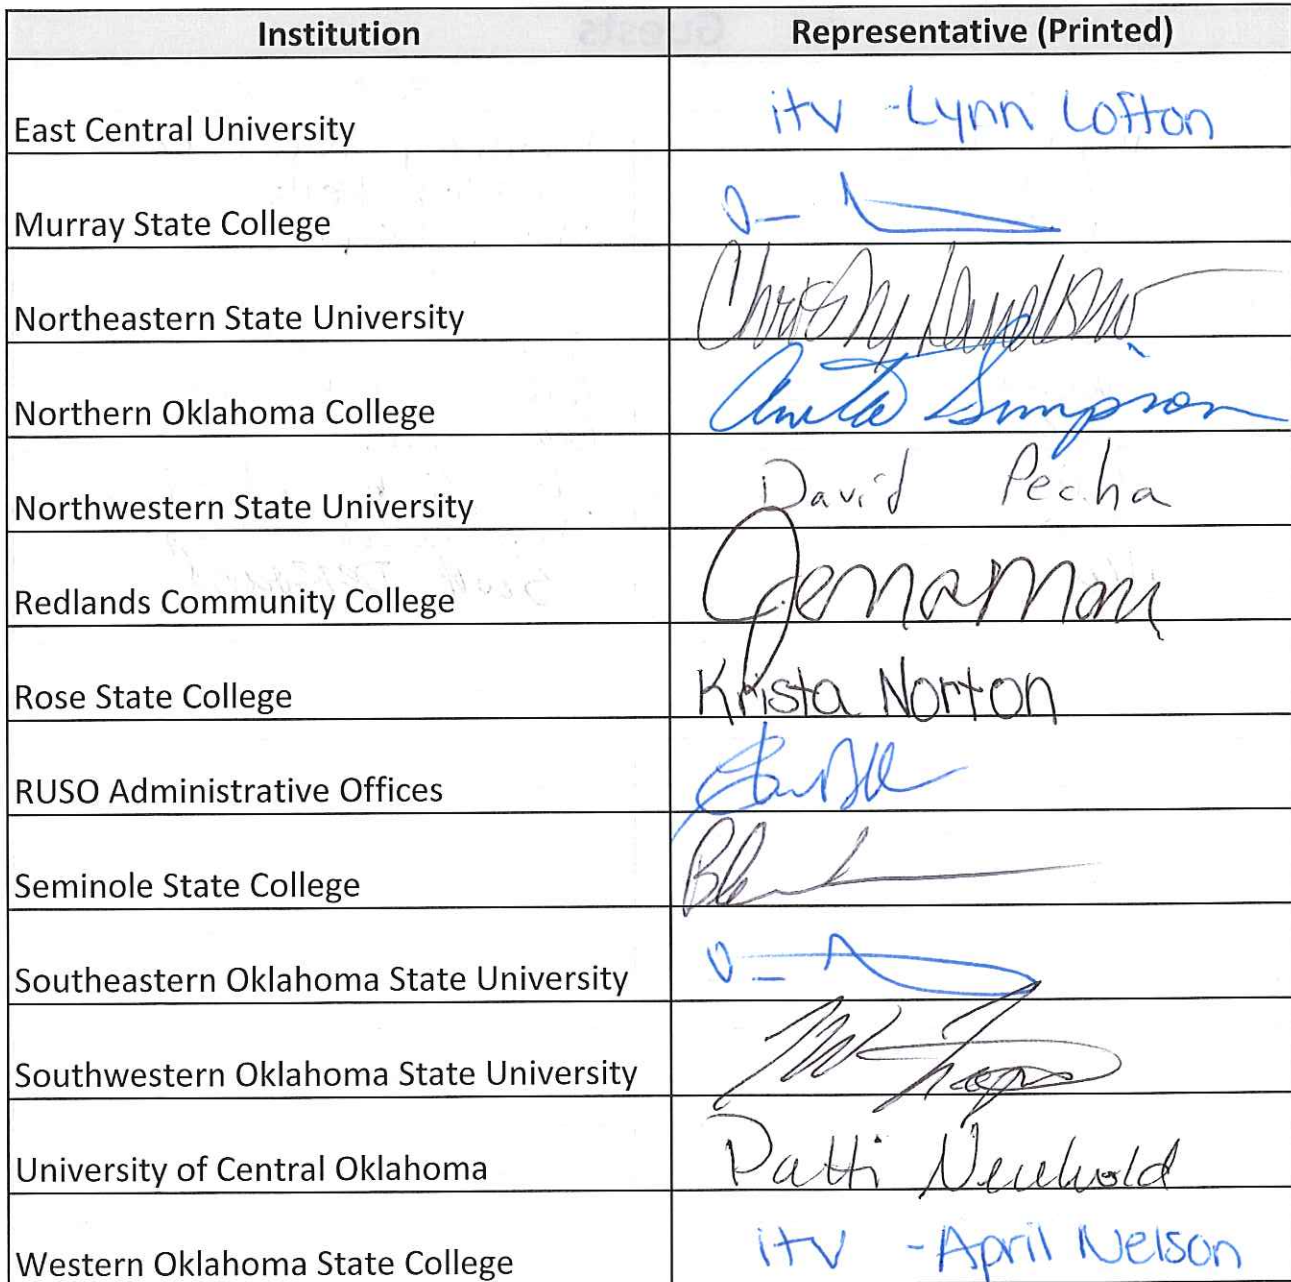 Institution Representative (Printed)
East Central University itv - Lynn Lofton
Murray State College
Northeastern State University Christy Landsaw
Northern Oklahoma College Anita Simpson
Northwestern State University David Pecha
Redlands Community College Jena Marr
Rose State College Krista Norton
RUSO Administrative Offices
Seminole State College
Southeastern Oklahoma State University
Southwestern Oklahoma State University
University of Central Oklahoma Patti Neuhold
Western Oklahoma State College itv - April Nelson